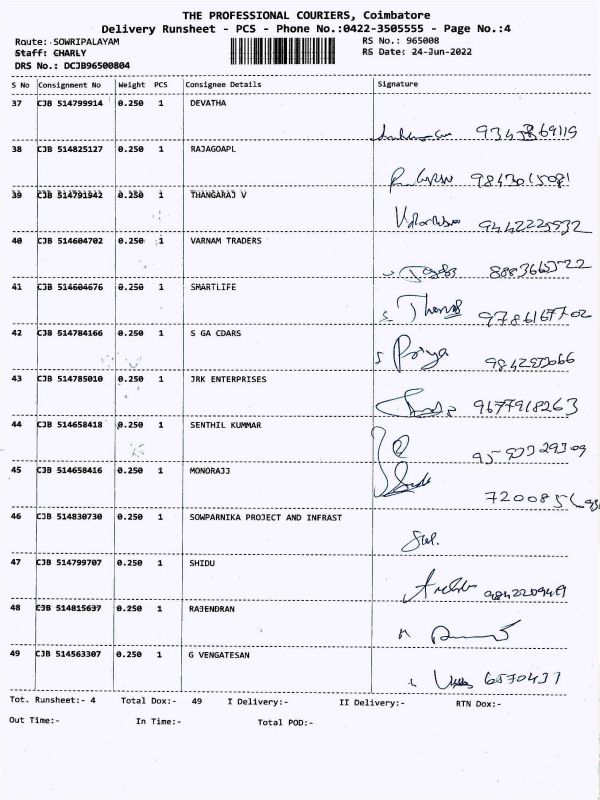 THE PROFESSIONAL COURIERS, Coimbatore
Delivery Runsheet - PCS - Phone No.:0422-3505555 - Page No.:4
Route: SOWRIPALAYAM RS No.: 965008
Staff: CHARLY RS Date: 24-Jun-2022
DRS No.: DCJB96500804
S No Consignment No Weight PCS Consignee Details Signature
37 CJB 514799914 0.250 1 DEVATHA
38 CJB 514825127 0.250 1 RAJAGOAPL
9843015081
39 CJB 514791942 0.250 1 THANGARAJ V
9442225932
40 CJB 514604702 0.250 1 VARNAM TRADERS
41 CJB 514604676 0.250 1 SMARTLIFE
9786167702
42 CJB 514784166 0.250 1 S GA CDARS
Priya
43 CJB 514785010 0.250 1 JRK ENTERPRISES
9677918263
44 CJB 514658418 0.250 1 SENTHIL KUMMAR
45 CJB 514658416 0.250 1 MONORAJJ
46 CJB 514830730 0.250 1 SOWPARNIKA PROJECT AND INFRAST
47 CJB 514799707 0.250 1 SHIDU
48 CJB 514815637 0.250 1 RAJENDRAN
49 CJB 514563307 0.250 1 G VENGATESAN
6570437
Tot. Runsheet:- 4 Total Dox:- 49 I Delivery:- II Delivery:- RTN Dox:-
Out Time:- In Time:- Total POD:-